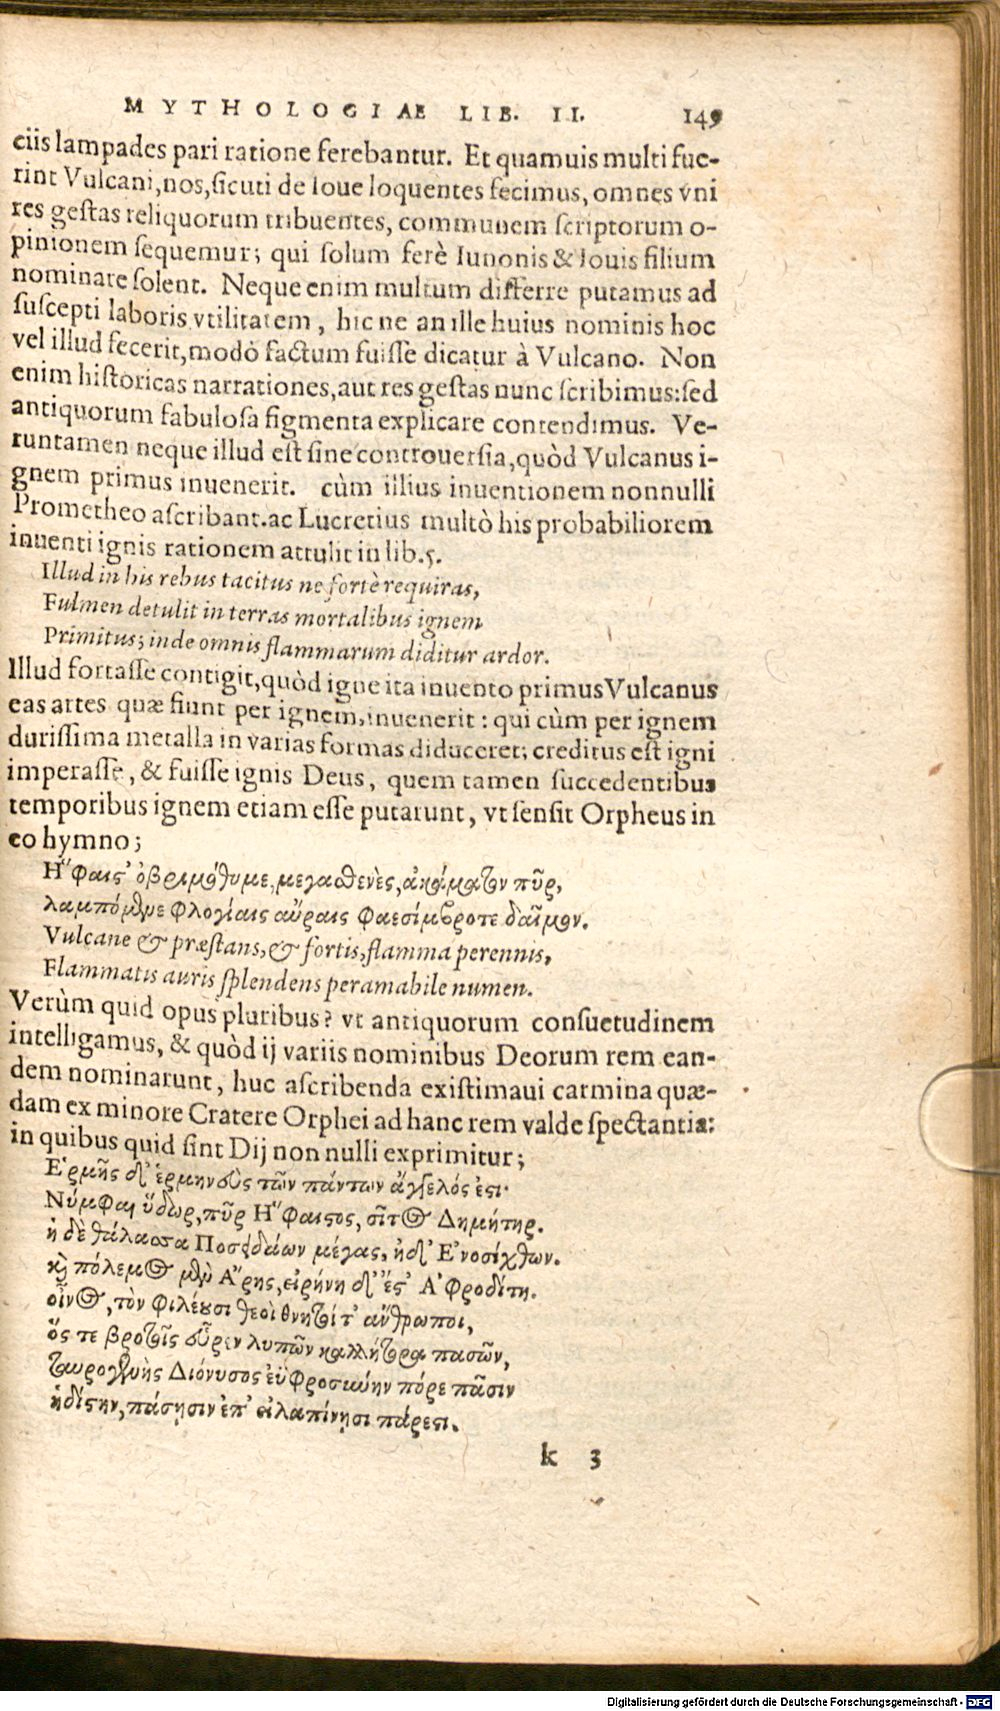 MYTHOLOGIAE LIB. II. 149
ciis lampades pari ratione ferebantur. Et quamuis multi fue-
rint Vulcani, nos, sicuti de Ioue loquentes fecimus, omnes vni
res gestas reliquorum tribuentes, communem scriptorum o-
pinionem sequemur; qui solum ferè Iunonis & Iouis filium
nominare solent. Neque enim multum differre putamus ad
suscepti laboris vtilitatem, hic ne an ille huius nominis hoc
vel illud fecerit, modò factum fuisse dicatur à Vulcano. Non
enim historicas narrationes, aut res gestas nunc scribimus: sed
antiquorum fabulosa figmenta explicare contendimus. Ve-
runtamen neque illud est sine controuersia, quòd Vulcanus i-
gnem primus inuenerit. cùm illius inuentionem nonnulli
Prometheo ascribant. ac Lucretius multò his probabiliorem
inuenti ignis rationem attulit in lib. 5.
Illud in his rebus tacitus ne fortè requiras,
Fulmen detulit in terras mortalibus ignem
Primitus; inde omnis flammarum diditur ardor.
Illud fortasse contigit, quòd igne ita inuento primus Vulcanus
eas artes quæ fiunt per ignem, inuenerit: qui cùm per ignem
durissima metalla in varias formas diduceret; creditus est igni
imperasse, & fuisse ignis Deus, quem tamen succedentibus
temporibus ignem etiam esse putarunt, vt sensit Orpheus in
eo hymno;
Ἥφαιστ' ὀβριμόθυμε, μεγασθενὲς, ἀκάματον πῦρ,
λαμπόμενε φλογίαις αὔραις φαεσίμβροτε δαῖμον.
Vulcane & præstans, & fortis, flamma perennis,
Flammatis auris splendens peramabile numen.
Verùm quid opus pluribus? vt antiquorum consuetudinem
intelligamus, & quòd ij variis nominibus Deorum rem ean-
dem nominarunt, huc ascribenda existimaui carmina quæ-
dam ex minore Cratere Orphei ad hanc rem valde spectantia:
in quibus quid sint Dij non nulli exprimitur;
Ἑρμῆς δ' ἑρμηνεὺς τῶν πάντων ἄγγελός ἐστι·
Νύμφαι ὕδωρ, πῦρ Ἥφαιστος, σῖτος Δημήτηρ.
ἡ δὲ θάλασσα Ποσειδάων μέγας, ἠδ' Ἐνοσίχθων.
καὶ πόλεμος μὲν Ἄρης, εἰρήνη δ' ἔστ' Ἀφροδίτη.
οἶνος, τὸν φιλέουσι θεοὶ θνητοί τ' ἄνθρωποι,
ὅς τε βροτοῖς εὗρεν λυπῶν κηλήτορα πασῶν,
ταυρογενὴς Διόνυσος ἐϋφροσύνην πόρε πᾶσιν
ἡδίστην, πάσῃσιν ἐπ' εἰλαπίνῃσι πάρεστι.
k 3
Digitalisierung gefördert durch die Deutsche Forschungsgemeinschaft - DFG